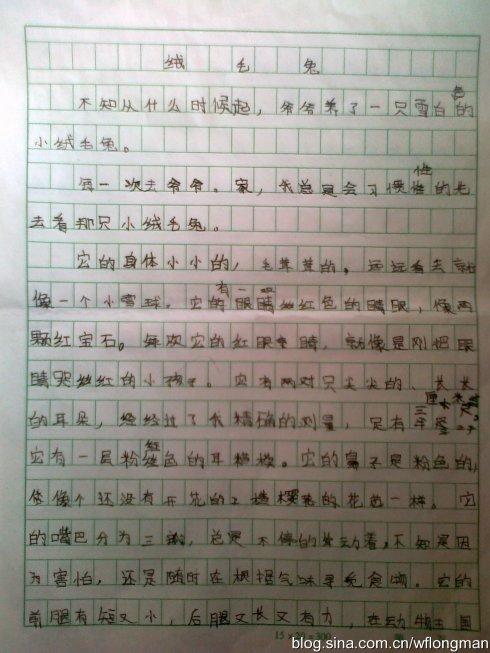 绒毛兔
不知从什么时候起，爷爷养了一只雪白色的
小绒毛兔。
每一次去爷爷。家，我总是会习惯性的先
去看那只小绒毛兔。
它的身体小小的，毛茸茸的。远远看去就
像一个小雪球。它的有一双红色的眼，像两
颗红宝石。每次它的红眼睛，就像是刚把眼
睛哭红的小孩子。它有两对只尖尖的、长长
的耳朵，经经过了我精确的测量，足有三厘米
它有一层粉红色的耳膜。它的鼻子是粉色的，
像个还没有开花的樱花的花苞一样。它
的嘴巴分为三瓣，总是不停的动着，不知是因
为害怕，还是随时在根据气味寻觅食物。它的
前腿有短又小，后腿又长又有力，在动物王国
15×20=300
blog.sina.com.cn/wflongman